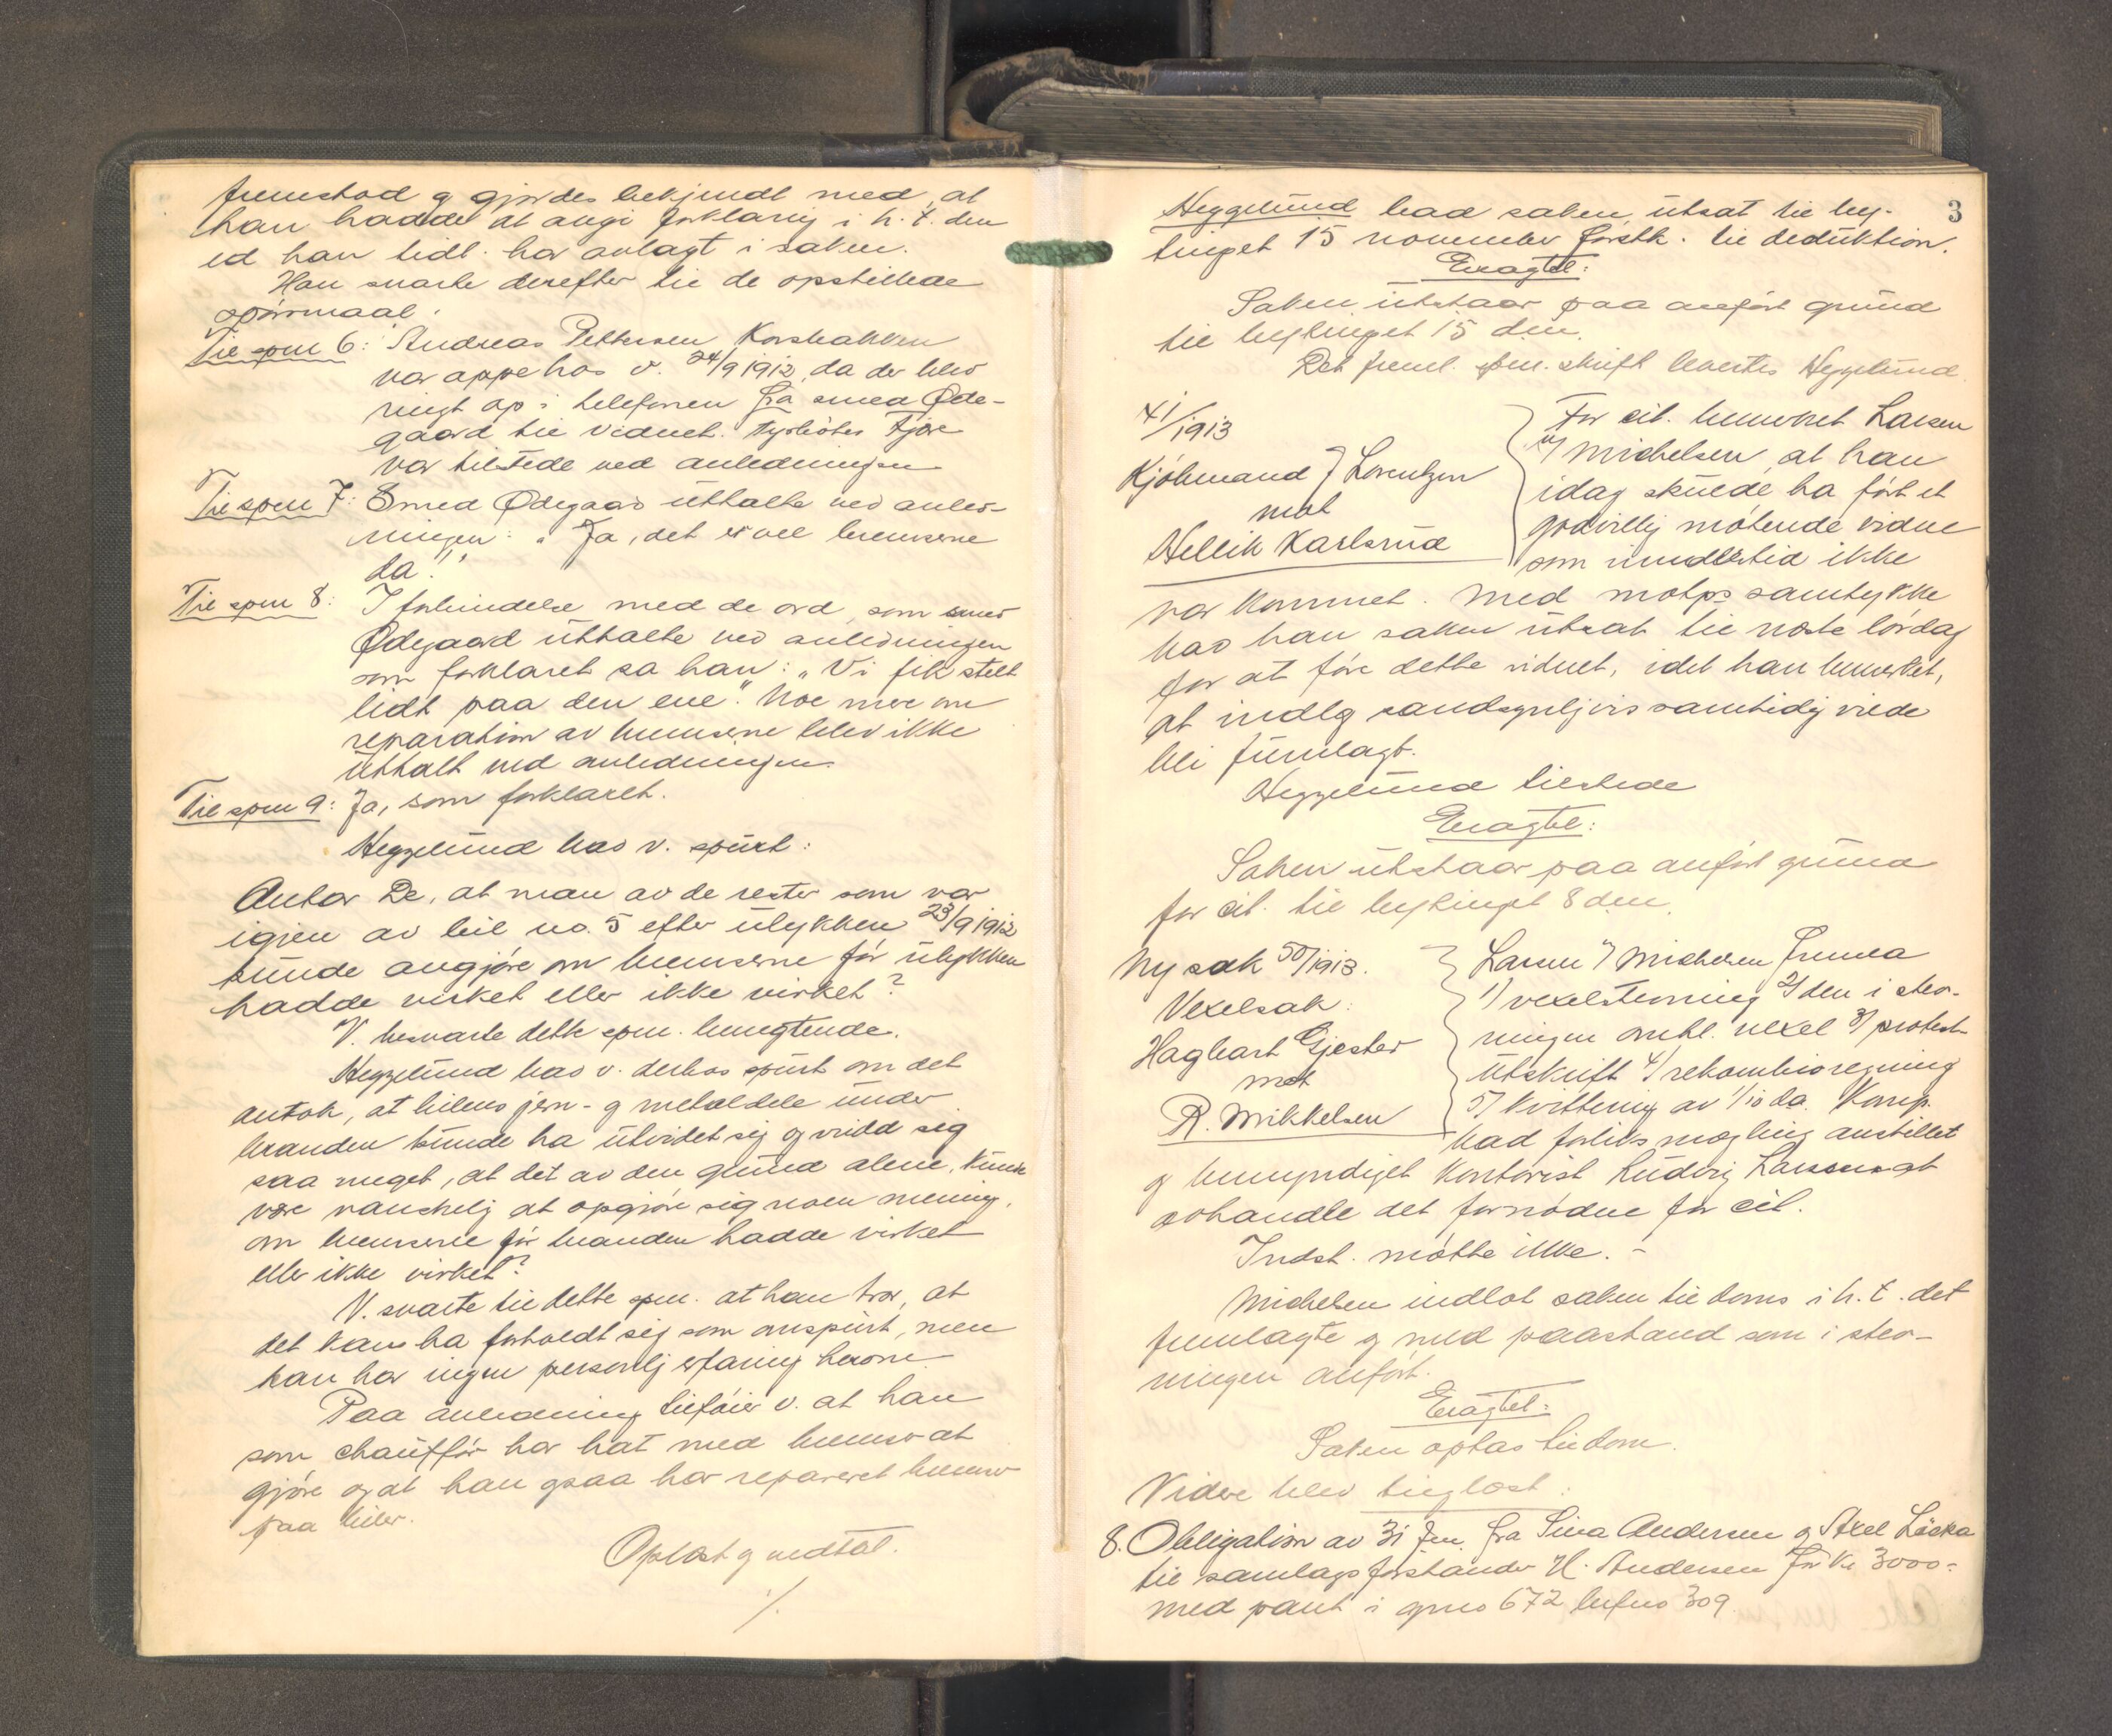 fremstod og gjordes bekjendt med, at
han hadde at avgi forklaring i h. t. den
ed han tidl. har avlagt i saken.
Han svarte derefter til de opstillede
spörsmaal.
Til spm 6: Andreas Pettersen Korsbakken
var oppe hos v. 24/9 1912, da der blev
ringt op i telefonen fra smed Øde-
gaard til vidnet. Hysbötes Fjøse
var tilstede ved anledningen
Til spm 7: Smed Ødegaard uttalte ved anled-
ningen: "Ja, det er vel bremserne
da!"
Til spm 8: I forbindelse med de ord, som smed
Ødegaard uttalte ved anledningen
som forklaret sa han: "Vi fik stelt
lidt paa den ene". Noe mere om
reparation av bremserne blev ikke
uttalt ved anledningen.
Til spm 9: Ja, som forklaret.
Heggelund bad v. spurt:
Antar De, at man av de rester som var
igjen av bil no. 5 efter ulykken 23/9 1912
kunde avgjøre om bremserne för ulykken
hadde virket eller ikke virket?
V. besvarte dette spm. benegtende.
Heggelund bad v. derhos spurt om det
antok, at bilens jern- og metaldele under
branden kunde ha utvidet sig og vridd sig
saa meget, at det av den grund alene, kunde
være vanskelig at opgjøre sig noen mening,
om bremserne för branden hadde virket
eller ikke virket?
V. svarte til dette spm. at han tror, at
det kan ha forholdt sig som anspurt, men
han har ingen personlig erfaring herom.
Paa anledning tilföier v. at han
som chaufför har hat med bremser at
gjøre og at han ogsaa har reparert bremser
paa biler.
Oplæst og vedtat.
./.
3
Heggelund bad saken utsat til by-
tinget 15 november förstk. til deduktion.
Eragtet:
Saken utstaar paa anfört grund
til bytinget 15 dm.
Det freml. spm. skrift leveretes Heggelund.
41/1913
Kjöbmand J Lorentzen
mot
Hellik Karlsrud
For cit. bemerket Larsen
v/ Michelsen, at han
idag skulde ha fört et
godvillig mötende vidne
som imidlertid ikke
var kommet. Med motps samtykke
bad han saken utsat til næste lördag
for at före dette vidnet, idet han bemerket,
at indlg sandsynligvis samtidig vilde
bli fremlagt.
Heggelund tilstede
Eragtet:
Saken utstaar paa anfört grund
for cit. til bytinget 8 dm.
Ny sak 50/1913.
Vexelsak:
Hagbart Gjester
mot
R. Mikkelsen
Larsen v/ Michelsen fremla
1) vexelstevning 2) den i stev-
ningen omhl. vexel 3) protest-
utskrift 4) rekambioregning
5) kvittering av 1/10 da. Komp.
bad forliksmægling anstillet
og bemyndiget kontorist Ludvig Larssen at
avhandle det fornødne for cit.
Indst. mötte ikke. -
Michelsen indlot saken til doms i h. t. det
fremlagte og med paastand som i stev-
ningen anfört.
Eragtet:
Saken optas til dom.
Videre blev tinglæst:
8. Obligation av 31 fm. fra Sina Andersen og Axel Löcka
til samlagsforstander H. Andersen for Kr 3000=
med pant i gno 672 bufno 309